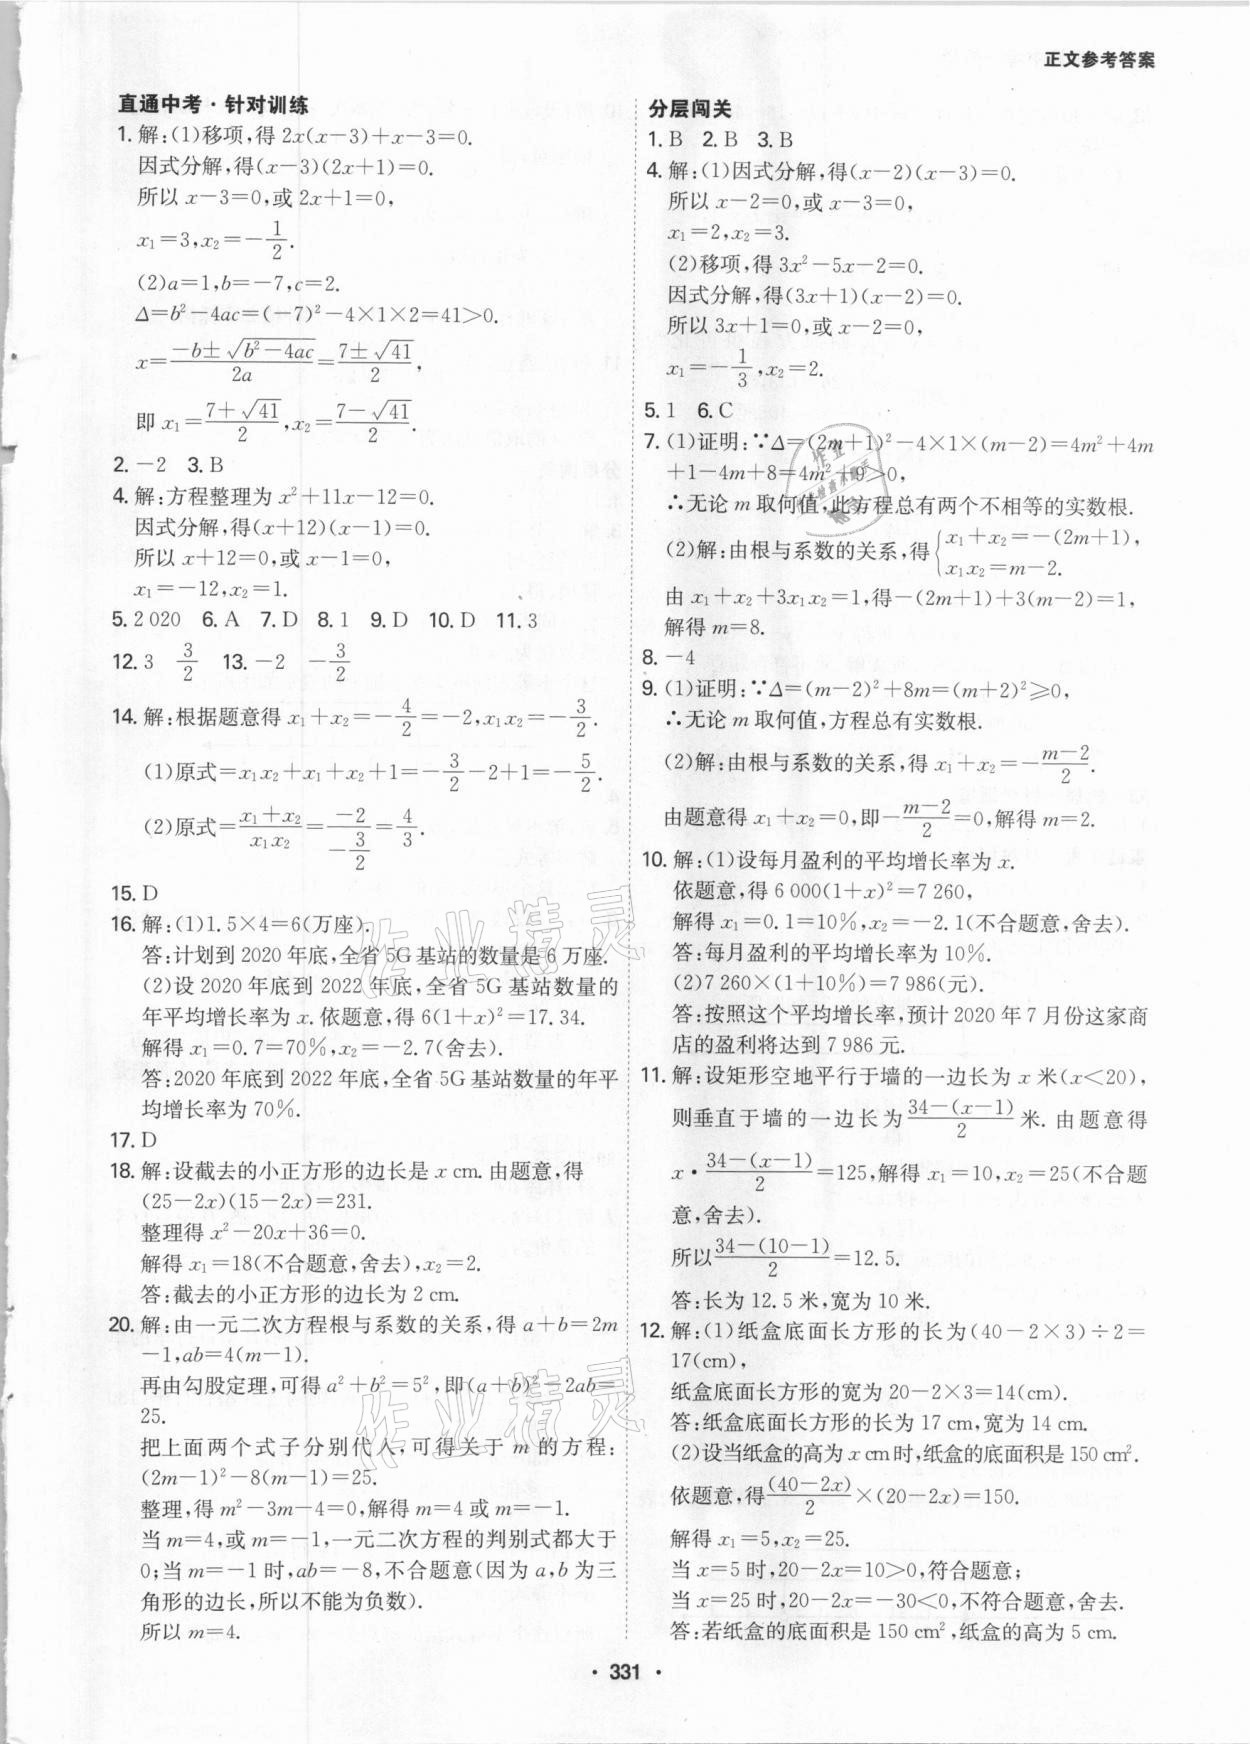 正文参考答案
直通中考·针对训练
1. 解:(1)移项,得 2x(x－3)＋x－3＝0.
因式分解,得(x－3)(2x＋1)＝0.
所以 x－3＝0,或 2x＋1＝0,
x₁＝3,x₂＝－1/2.
(2)a＝1,b＝－7,c＝2.
Δ＝b²－4ac＝(－7)²－4×1×2＝41＞0.
x＝(－b±√(b²－4ac))/2a＝(7±√41)/2,
即 x₁＝(7＋√41)/2,x₂＝(7－√41)/2.
2. －2 3. B
4. 解:方程整理为 x²＋11x－12＝0.
因式分解,得(x＋12)(x－1)＝0.
所以 x＋12＝0,或 x－1＝0,
x₁＝－12,x₂＝1.
5. 2 020 6. A 7. D 8. 1 9. D 10. D 11. 3
12. 3 3/2 13. －2 －3/2
14. 解:根据题意得 x₁＋x₂＝－4/2＝－2,x₁x₂＝－3/2.
(1)原式＝x₁x₂＋x₁＋x₂＋1＝－3/2－2＋1＝－5/2.
(2)原式＝(x₁＋x₂)/(x₁x₂)＝－2/(－3/2)＝4/3.
15. D
16. 解:(1)1.5×4＝6(万座).
答:计划到 2020 年底,全省 5G 基站的数量是 6 万座.
(2)设 2020 年底到 2022 年底,全省 5G 基站数量的
年平均增长率为 x. 依题意,得 6(1＋x)²＝17.34.
解得 x₁＝0.7＝70%,x₂＝－2.7(舍去).
答:2020 年底到 2022 年底,全省 5G 基站数量的年平
均增长率为 70%.
17. D
18. 解:设截去的小正方形的边长是 x cm. 由题意,得
(25－2x)(15－2x)＝231.
整理得 x²－20x＋36＝0.
解得 x₁＝18(不合题意,舍去),x₂＝2.
答:截去的小正方形的边长为 2 cm.
20. 解:由一元二次方程根与系数的关系,得 a＋b＝2m
－1,ab＝4(m－1).
再由勾股定理,可得 a²＋b²＝5²,即(a＋b)²－2ab＝
25.
把上面两个式子分别代入,可得关于 m 的方程:
(2m－1)²－8(m－1)＝25.
整理,得 m²－3m－4＝0.解得 m＝4 或 m＝－1.
当 m＝4,或 m＝－1,一元二次方程的判别式都大于
0;当 m＝－1 时,ab＝－8,不合题意(因为 a,b 为三
角形的边长,所以不能为负数).
所以 m＝4.
分层闯关
1. B 2. B 3. B
4. 解:(1)因式分解,得(x－2)(x－3)＝0.
所以 x－2＝0,或 x－3＝0,
x₁＝2,x₂＝3.
(2)移项,得 3x²－5x－2＝0.
因式分解,得(3x＋1)(x－2)＝0.
所以 3x＋1＝0,或 x－2＝0,
x₁＝－1/3,x₂＝2.
5. 1 6. C
7. (1)证明:∵Δ＝(2m＋1)²－4×1×(m－2)＝4m²＋4m
＋1－4m＋8＝4m²＋9＞0,
∴无论 m 取何值,此方程总有两个不相等的实数根.
(2)解:由根与系数的关系,得{x₁＋x₂＝－(2m＋1),
x₁x₂＝m－2.
由 x₁＋x₂＋3x₁x₂＝1,得－(2m＋1)＋3(m－2)＝1,
解得 m＝8.
8. －4
9. (1)证明:∵Δ＝(m－2)²＋8m＝(m＋2)²≥0,
∴无论 m 取何值,方程总有实数根.
(2)解:由根与系数的关系,得 x₁＋x₂＝－(m－2)/2.
由题意得 x₁＋x₂＝0,即－(m－2)/2＝0,解得 m＝2.
10. 解:(1)设每月盈利的平均增长率为 x.
依题意,得 6 000(1＋x)²＝7 260,
解得 x₁＝0.1＝10%,x₂＝－2.1(不合题意,舍去).
答:每月盈利的平均增长率为 10%.
(2)7 260×(1＋10%)＝7 986(元).
答:按照这个平均增长率,预计 2020 年 7 月份这家商
店的盈利将达到 7 986 元.
11. 解:设矩形空地平行于墙的一边长为 x 米(x＜20),
则垂直于墙的一边长为(34－(x－1))/2米. 由题意得
x·(34－(x－1))/2＝125,解得 x₁＝10,x₂＝25(不合题
意,舍去).
所以(34－(10－1))/2＝12.5.
答:长为 12.5 米,宽为 10 米.
12. 解:(1)纸盒底面长方形的长为(40－2×3)÷2＝
17(cm),
纸盒底面长方形的宽为 20－2×3＝14(cm).
答:纸盒底面长方形的长为 17 cm,宽为 14 cm.
(2)设当纸盒的高为 x cm时,纸盒的底面积是 150 cm².
依题意,得(40－2x)/2×(20－2x)＝150.
解得 x₁＝5,x₂＝25.
当 x＝5 时,20－2x＝10＞0,符合题意;
当 x＝25 时,20－2x＝－30＜0,不符合题意,舍去.
答:若纸盒的底面积是 150 cm²,纸盒的高为 5 cm.
· 331 ·
作业精灵
作业精灵